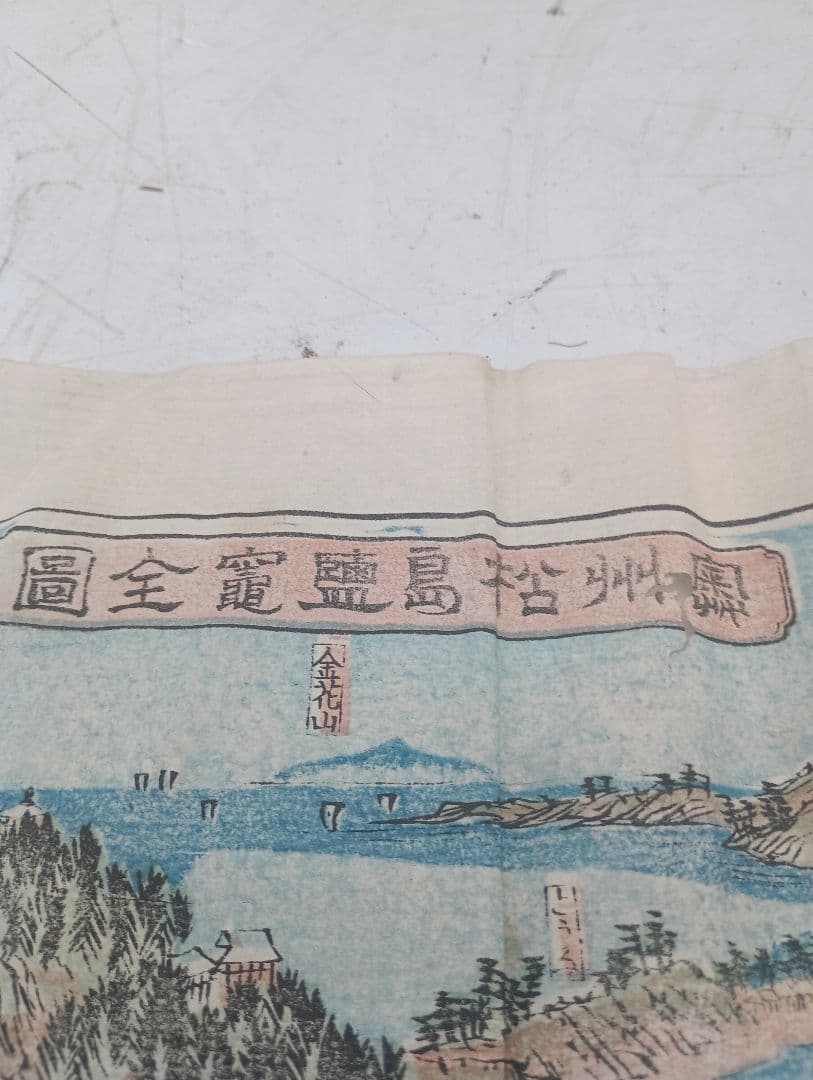 奧州松島鹽竈全圖
金花山